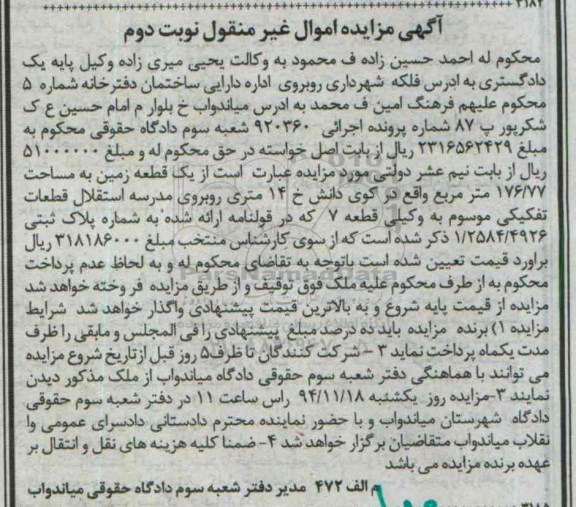 ۳۱۸۲
آگهی مزایده اموال غیر منقول نوبت دوم
محکوم له احمد حسین زاده ف محمود به وکالت یحیی میری زاده وکیل پایه یک
دادگستری به ادرس فلکه شهرداری روبروی اداره دارایی ساختمان دفترخانه شماره ۵
محکوم علیهم فرهنگ امین ف محمد به ادرس میاندواب خ بلوار م امام حسین ع ک
شکرپور پ ۸۷ شماره پرونده اجرائی ۹۲۰۳۶۰ شعبه سوم دادگاه حقوقی محکوم به
مبلغ ۲۳۱۶۵۶۲۴۲۹ ریال از بابت اصل خواسته در حق محکوم له و مبلغ ۵۱۰۰۰۰۰۰
ریال از بابت نیم عشر دولتی مورد مزایده عبارت است از یک قطعه زمین به مساحت
۱۷۶/۷۷ متر مربع واقع در کوی دانش خ ۱۴ متری روبروی مدرسه استقلال قطعات
تفکیکی موسوم به وکیلی قطعه ۷ که در قولنامه ارائه شده به شماره پلاک ثبتی
۱/۲۵۸۴/۴۹۲۶ ذکر شده است که از سوی کارشناس منتخب مبلغ ۳۱۸۱۸۶۰۰۰ ریال
براورد قیمت تعیین شده است باتوجه به تقاضای محکوم له و به لحاظ عدم پرداخت
محکوم به از طرف محکوم علیه ملک فوق توقیف و از طریق مزایده فروخته خواهد شد
مزایده از قیمت پایه شروع و به بالاترین قیمت پیشنهادی واگذار خواهد شد شرایط
مزایده ۱) برنده مزایده باید ده درصد مبلغ پیشنهادی را فی المجلس و مابقی را ظرف
مدت یکماه پرداخت نماید ۳ – شرکت کنندگان تا ظرف۵ روز قبل ازتاریخ شروع مزایده
می توانند با هماهنگی دفتر شعبه سوم حقوقی دادگاه میاندواب از ملک مذکور دیدن
نمایند ۳-مزایده روز یکشنبه ۹۴/۱۱/۱۸ راس ساعت ۱۱ در دفتر شعبه سوم حقوقی
دادگاه شهرستان میاندواب و با حضور نماینده محترم دادستانی دادسرای عمومی وا
نقلاب میاندواب متقاضیان برگزار خواهد شد ۴- ضمنا کلیه هزینه های نقل و انتقال بر
عهده برنده مزایده می باشد
م الف ۴۷۲ مدیر دفتر شعبه سوم دادگاه حقوقی میاندواب